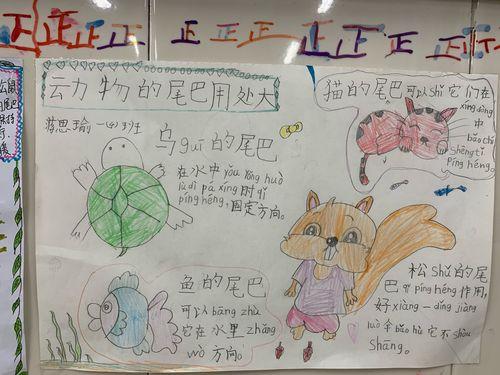 正正正正 正 正正 正正正 正 正正
云力物的尾巴用处大
蒋思瑜 一(4)班
乌guī的尾巴
在水中yóu yǒng huò
lù dì pá xíng时qǐ
pínghéng,固定方向。
猫的尾巴可以shǐ它们在
xíngdòng
中
bǎo chí
shēntǐ
píng héng。
鱼的尾巴
可以bāng zhù
它在水里zhǎng
wò方向。
松shǔ的尾
巴有píng héng作用,
好xiàng一dǐng jiàng
luò伞bǎo hù它不shòu
shāng。